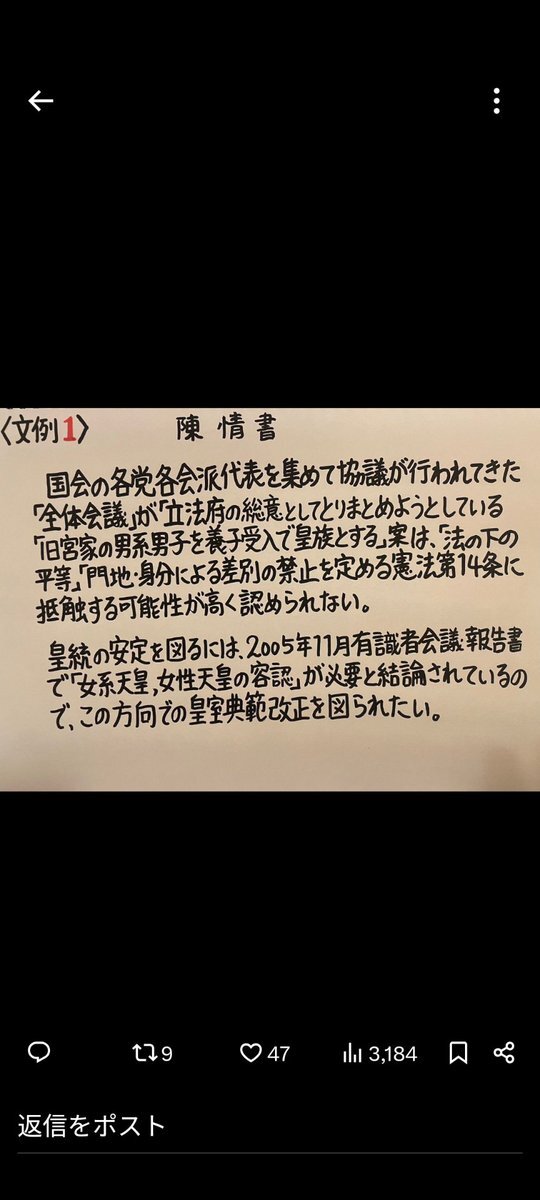 〈文例1〉 陳情書
国会の各党各会派代表を集めて協議が行われてきた
「全体会議」が「立法府の総意としてとりまとめようとしている
「旧宮家の男系男子を養子受入で皇族とする」案は、「法の下の
平等」「門地・身分による差別の禁止を定める憲法第14条に
抵触する可能性が高く認められない。
皇統の安定を図るには、2005年11月有識者会議報告書
で「女系天皇,女性天皇の容認」が必要と結論されているの
で、この方向での皇室典範改正を図られたい。
9 47 3,184
返信をポスト